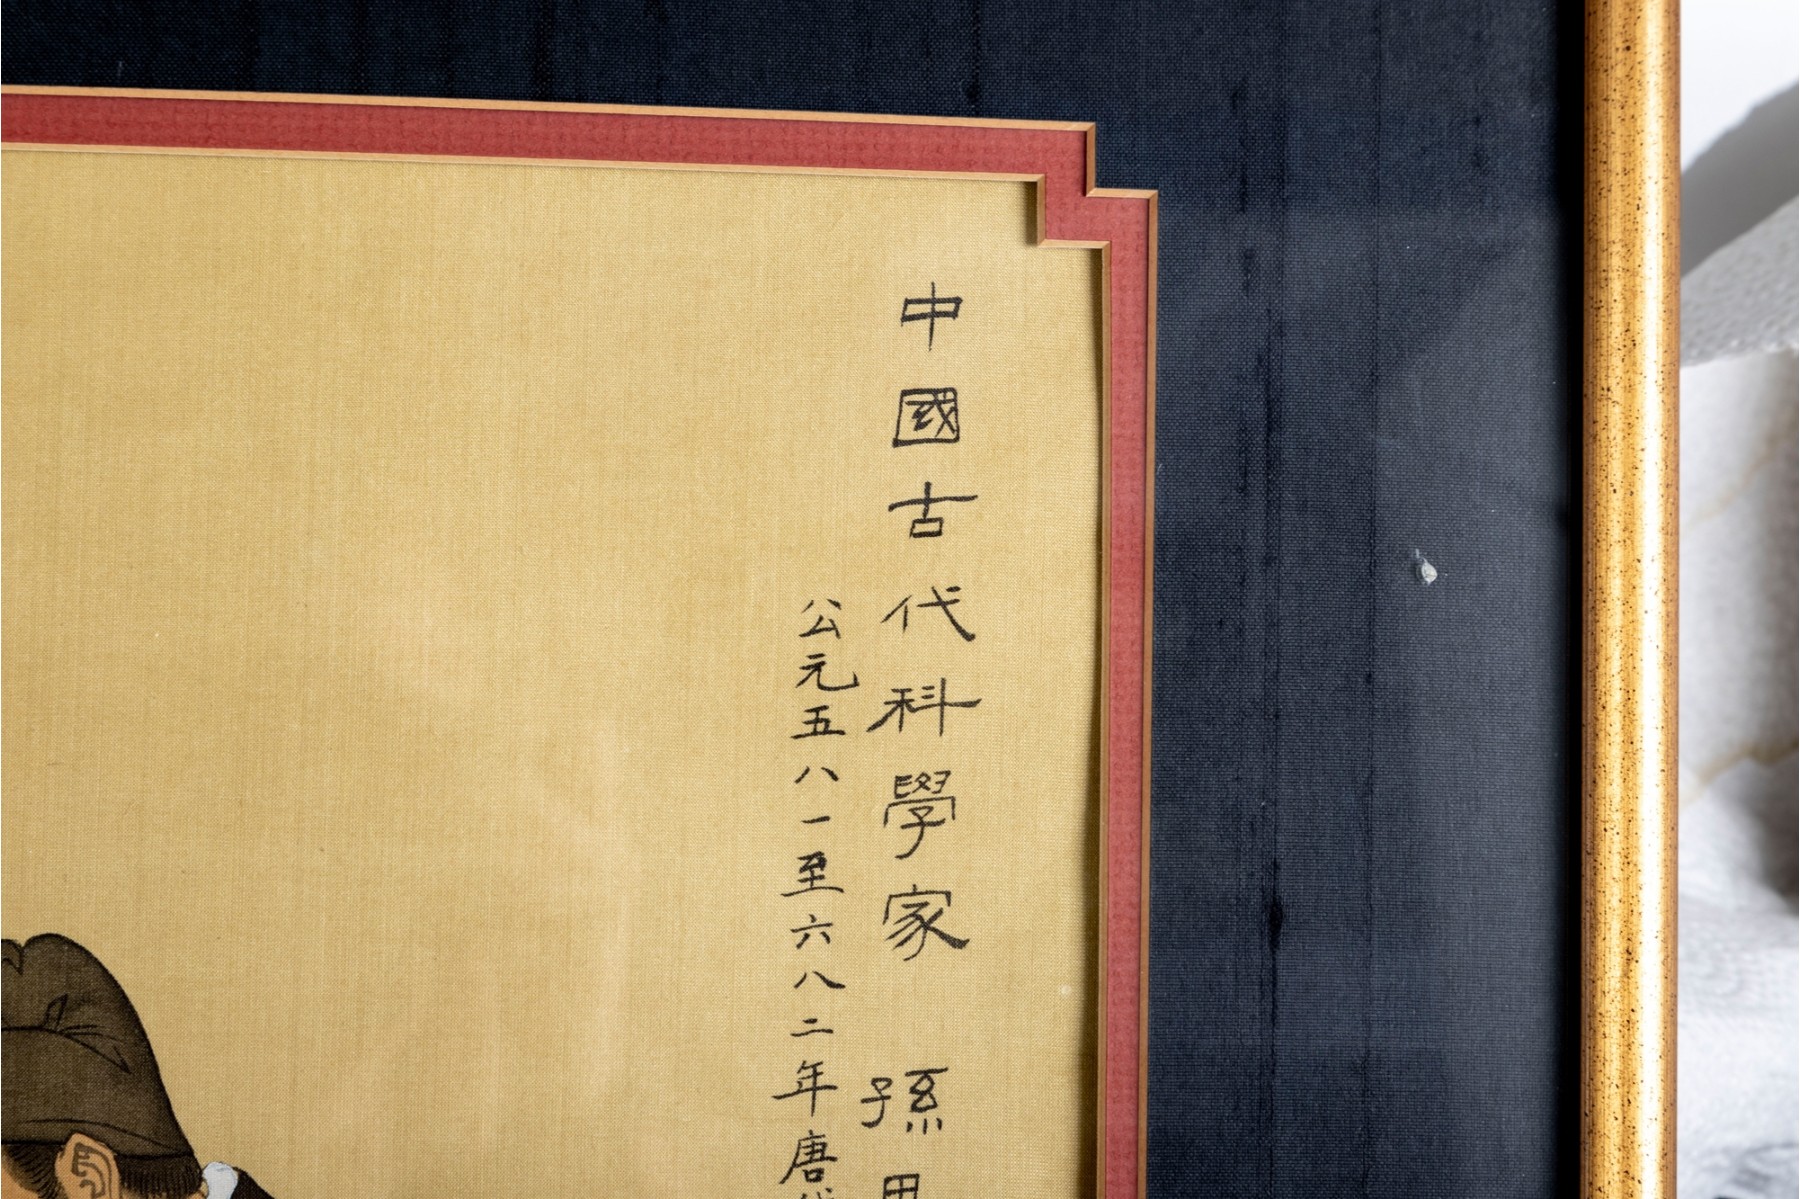 中國古代科學家 孫
公元五八一至六八二年唐